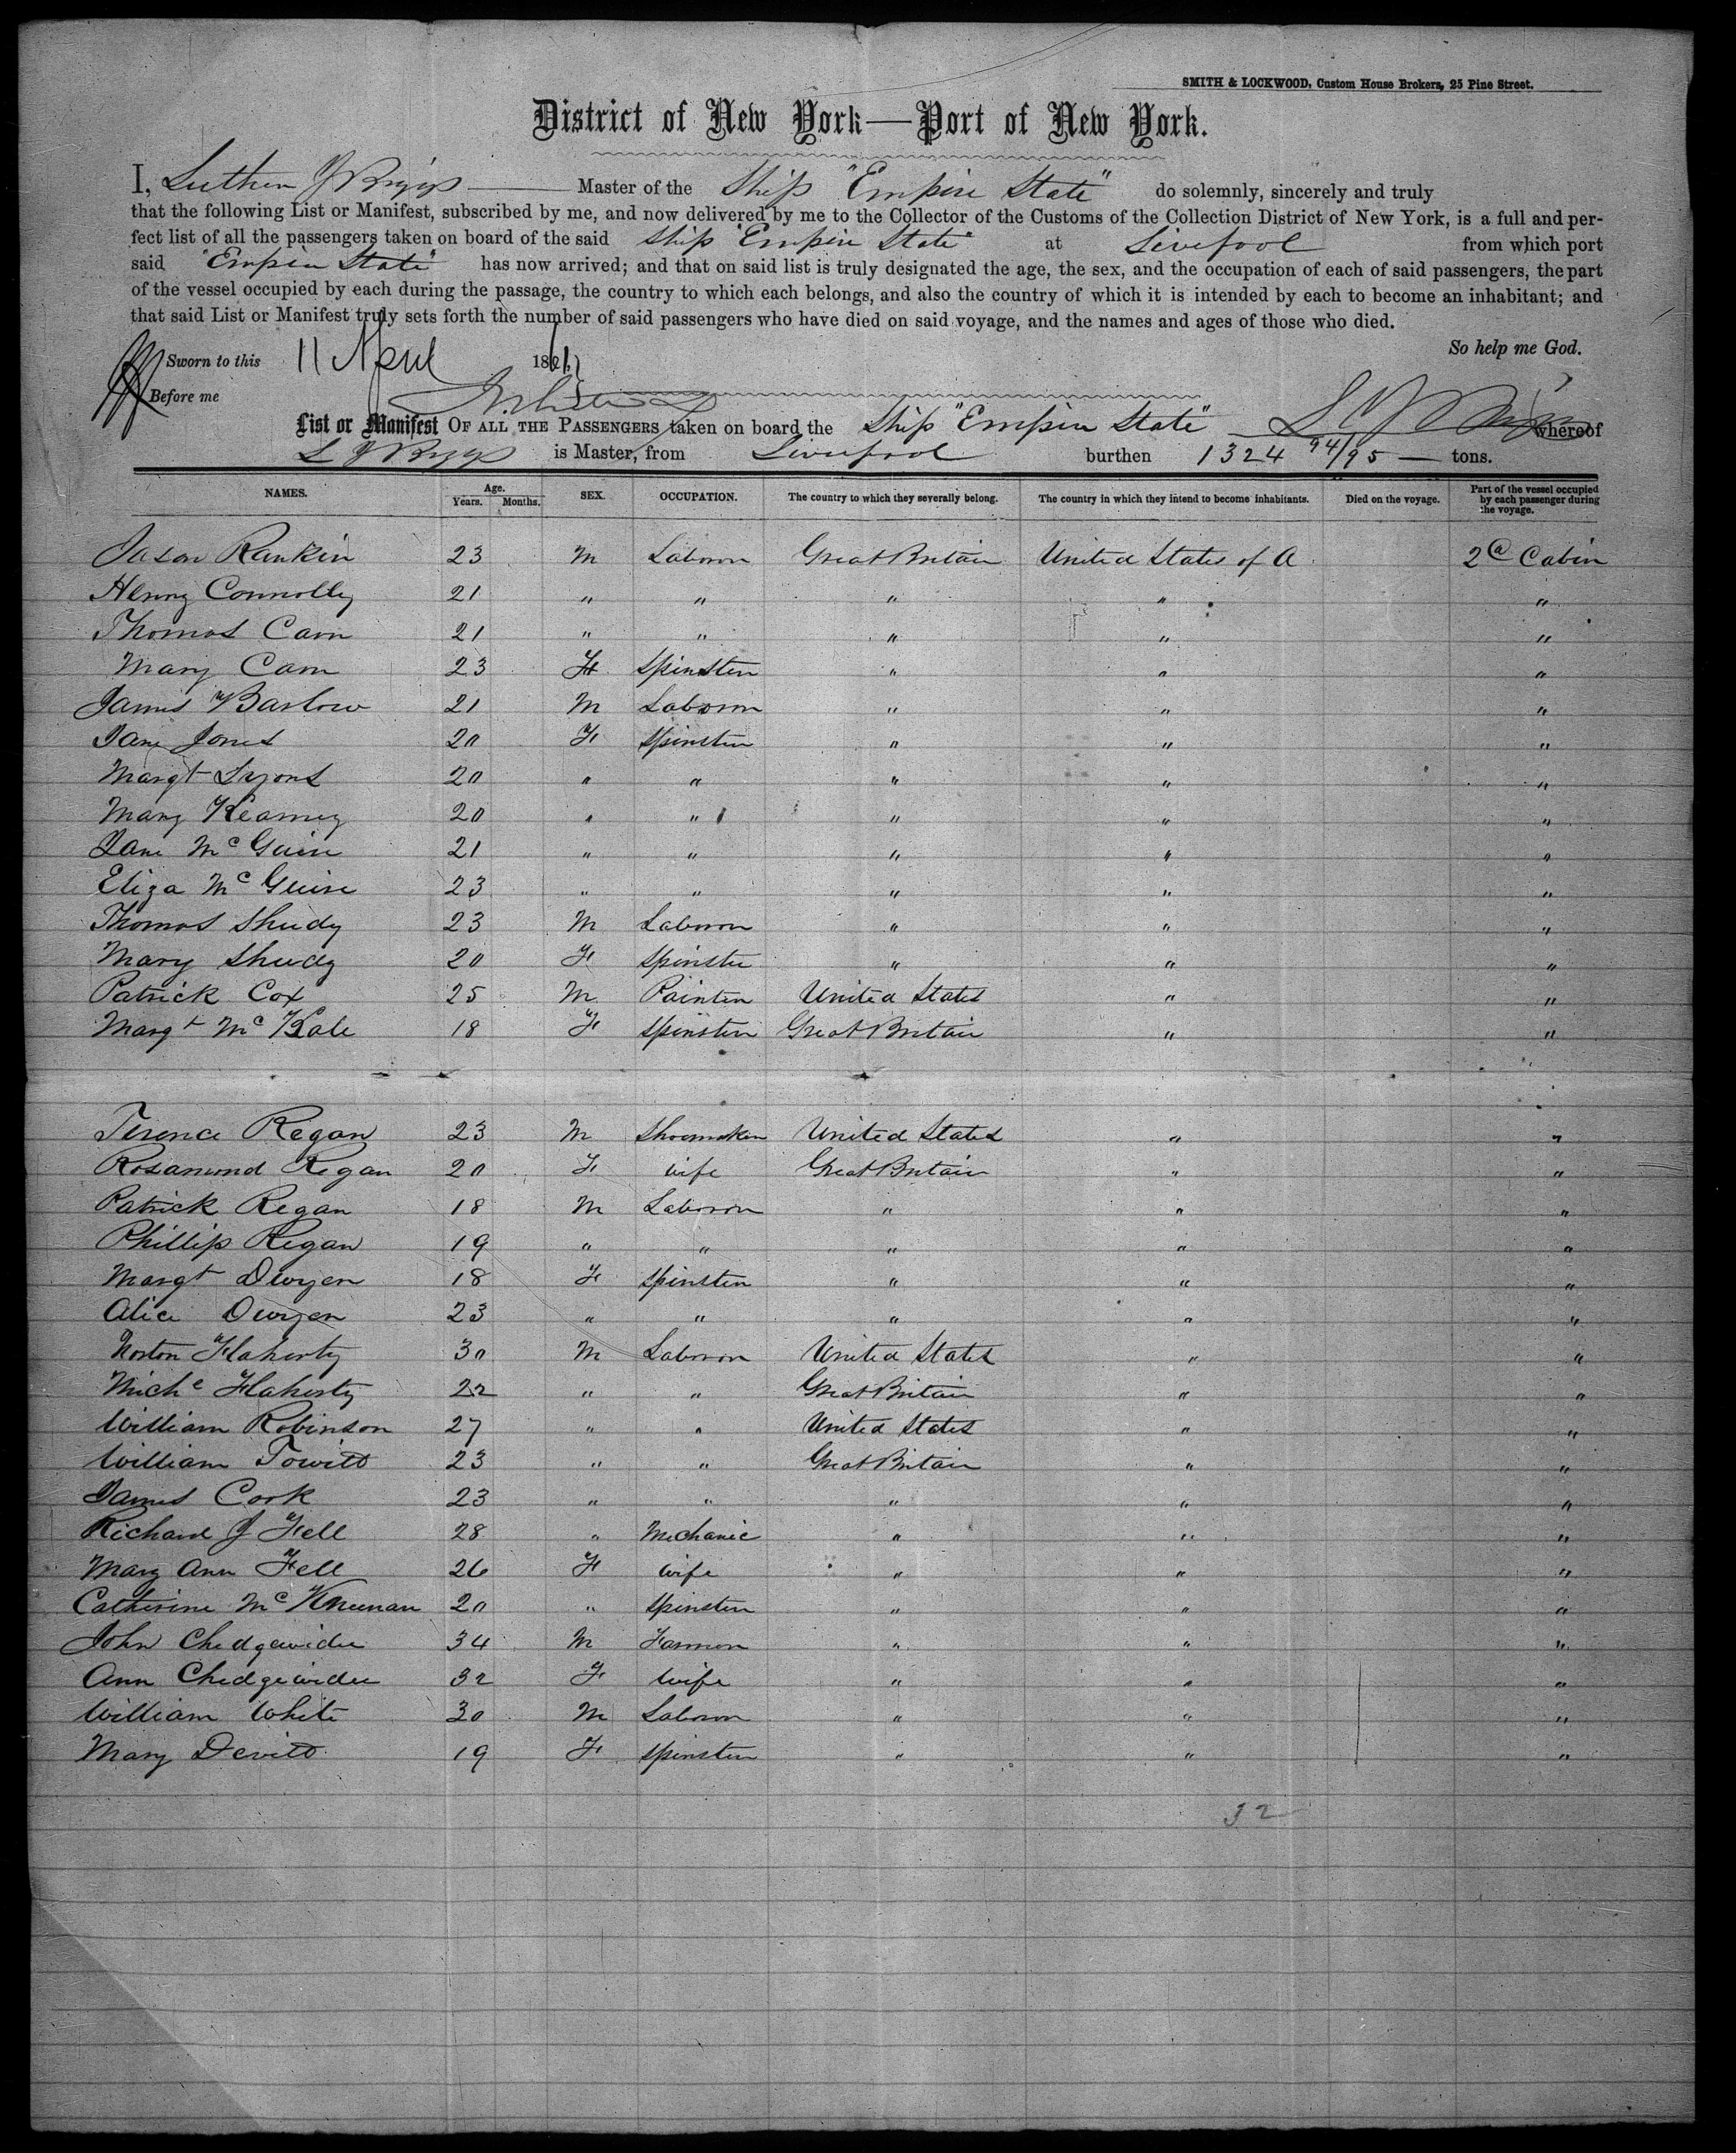 SMITH & LOCKWOOD, Custom House Brokers, 25 Pine Street.
District of New York—Port of New York.
I, Luther J Briggs Master of the Ship "Empire State" do solemnly, sincerely and truly
that the following List or Manifest, subscribed by me, and now delivered by me to the Collector of the Customs of the Collection District of New York, is a full and per-
fect list of all the passengers taken on board of the said Ship "Empire State" at Liverpool from which port
said "Empire State" has now arrived; and that on said list is truly designated the age, the sex, and the occupation of each of said passengers, the part
of the vessel occupied by each during the passage, the country to which each belongs, and also the country of which it is intended by each to become an inhabitant; and
that said List or Manifest truly sets forth the number of said passengers who have died on said voyage, and the names and ages of those who died.
So help me God.
Sworn to this 11 April 1861
Before me
List or Manifest OF ALL THE PASSENGERS taken on board the Ship "Empire State" whereof
L J Briggs is Master, from Liverpool burthen 1324 94/95 tons.
NAMES. Age. Years. Months. SEX. OCCUPATION. The country to which they severally belong. The country in which they intend to become inhabitants. Died on the voyage. Part of the vessel occupied by each passenger during the voyage.
Jason Rankin 23 M Laborer Great Britain United States of A 2d Cabin
Henry Connolly 21 " " " " "
Thomas Carn 21 " " " " "
Mary Carn 23 F Spinster " " "
James Barlow 21 M Laborer " " "
Jane Jones 20 F Spinster " " "
Margt Lyons 20 " " " " "
Mary Kearney 20 " " " " "
Jane McGuire 21 " " " " "
Eliza McGuire 23 " " " " "
Thomas Sheedy 23 M Laborer " " "
Mary Sheedy 20 F Spinster " " "
Patrick Cox 25 M Painter United States " "
Margt McKale 18 F Spinster Great Britain " "
Terence Regan 23 M Shoemaker United States " "
Rosamond Regan 20 F Wife Great Britain " "
Patrick Regan 18 M Laborer " " "
Phillip Regan 19 " " " " "
Margt Dwyer 18 F Spinster " " "
Alice Dwyer 23 " " " " "
Norton Flaherty 30 M Laborer United States " "
Miche Flaherty 22 " " Great Britain " "
William Robinson 27 " " United States " "
William Towitt 23 " " Great Britain " "
James Cook 23 " " " " "
Richard J Fell 28 " Mechanic " " "
Mary Ann Fell 26 F Wife " " "
Catherine McKneenan 20 " Spinster " " "
John Chedgewidee 34 M Farmer " " "
Ann Chedgewidee 32 F Wife " " "
William White 30 M Laborer " " "
Mary Devitt 19 F Spinster " " "
32